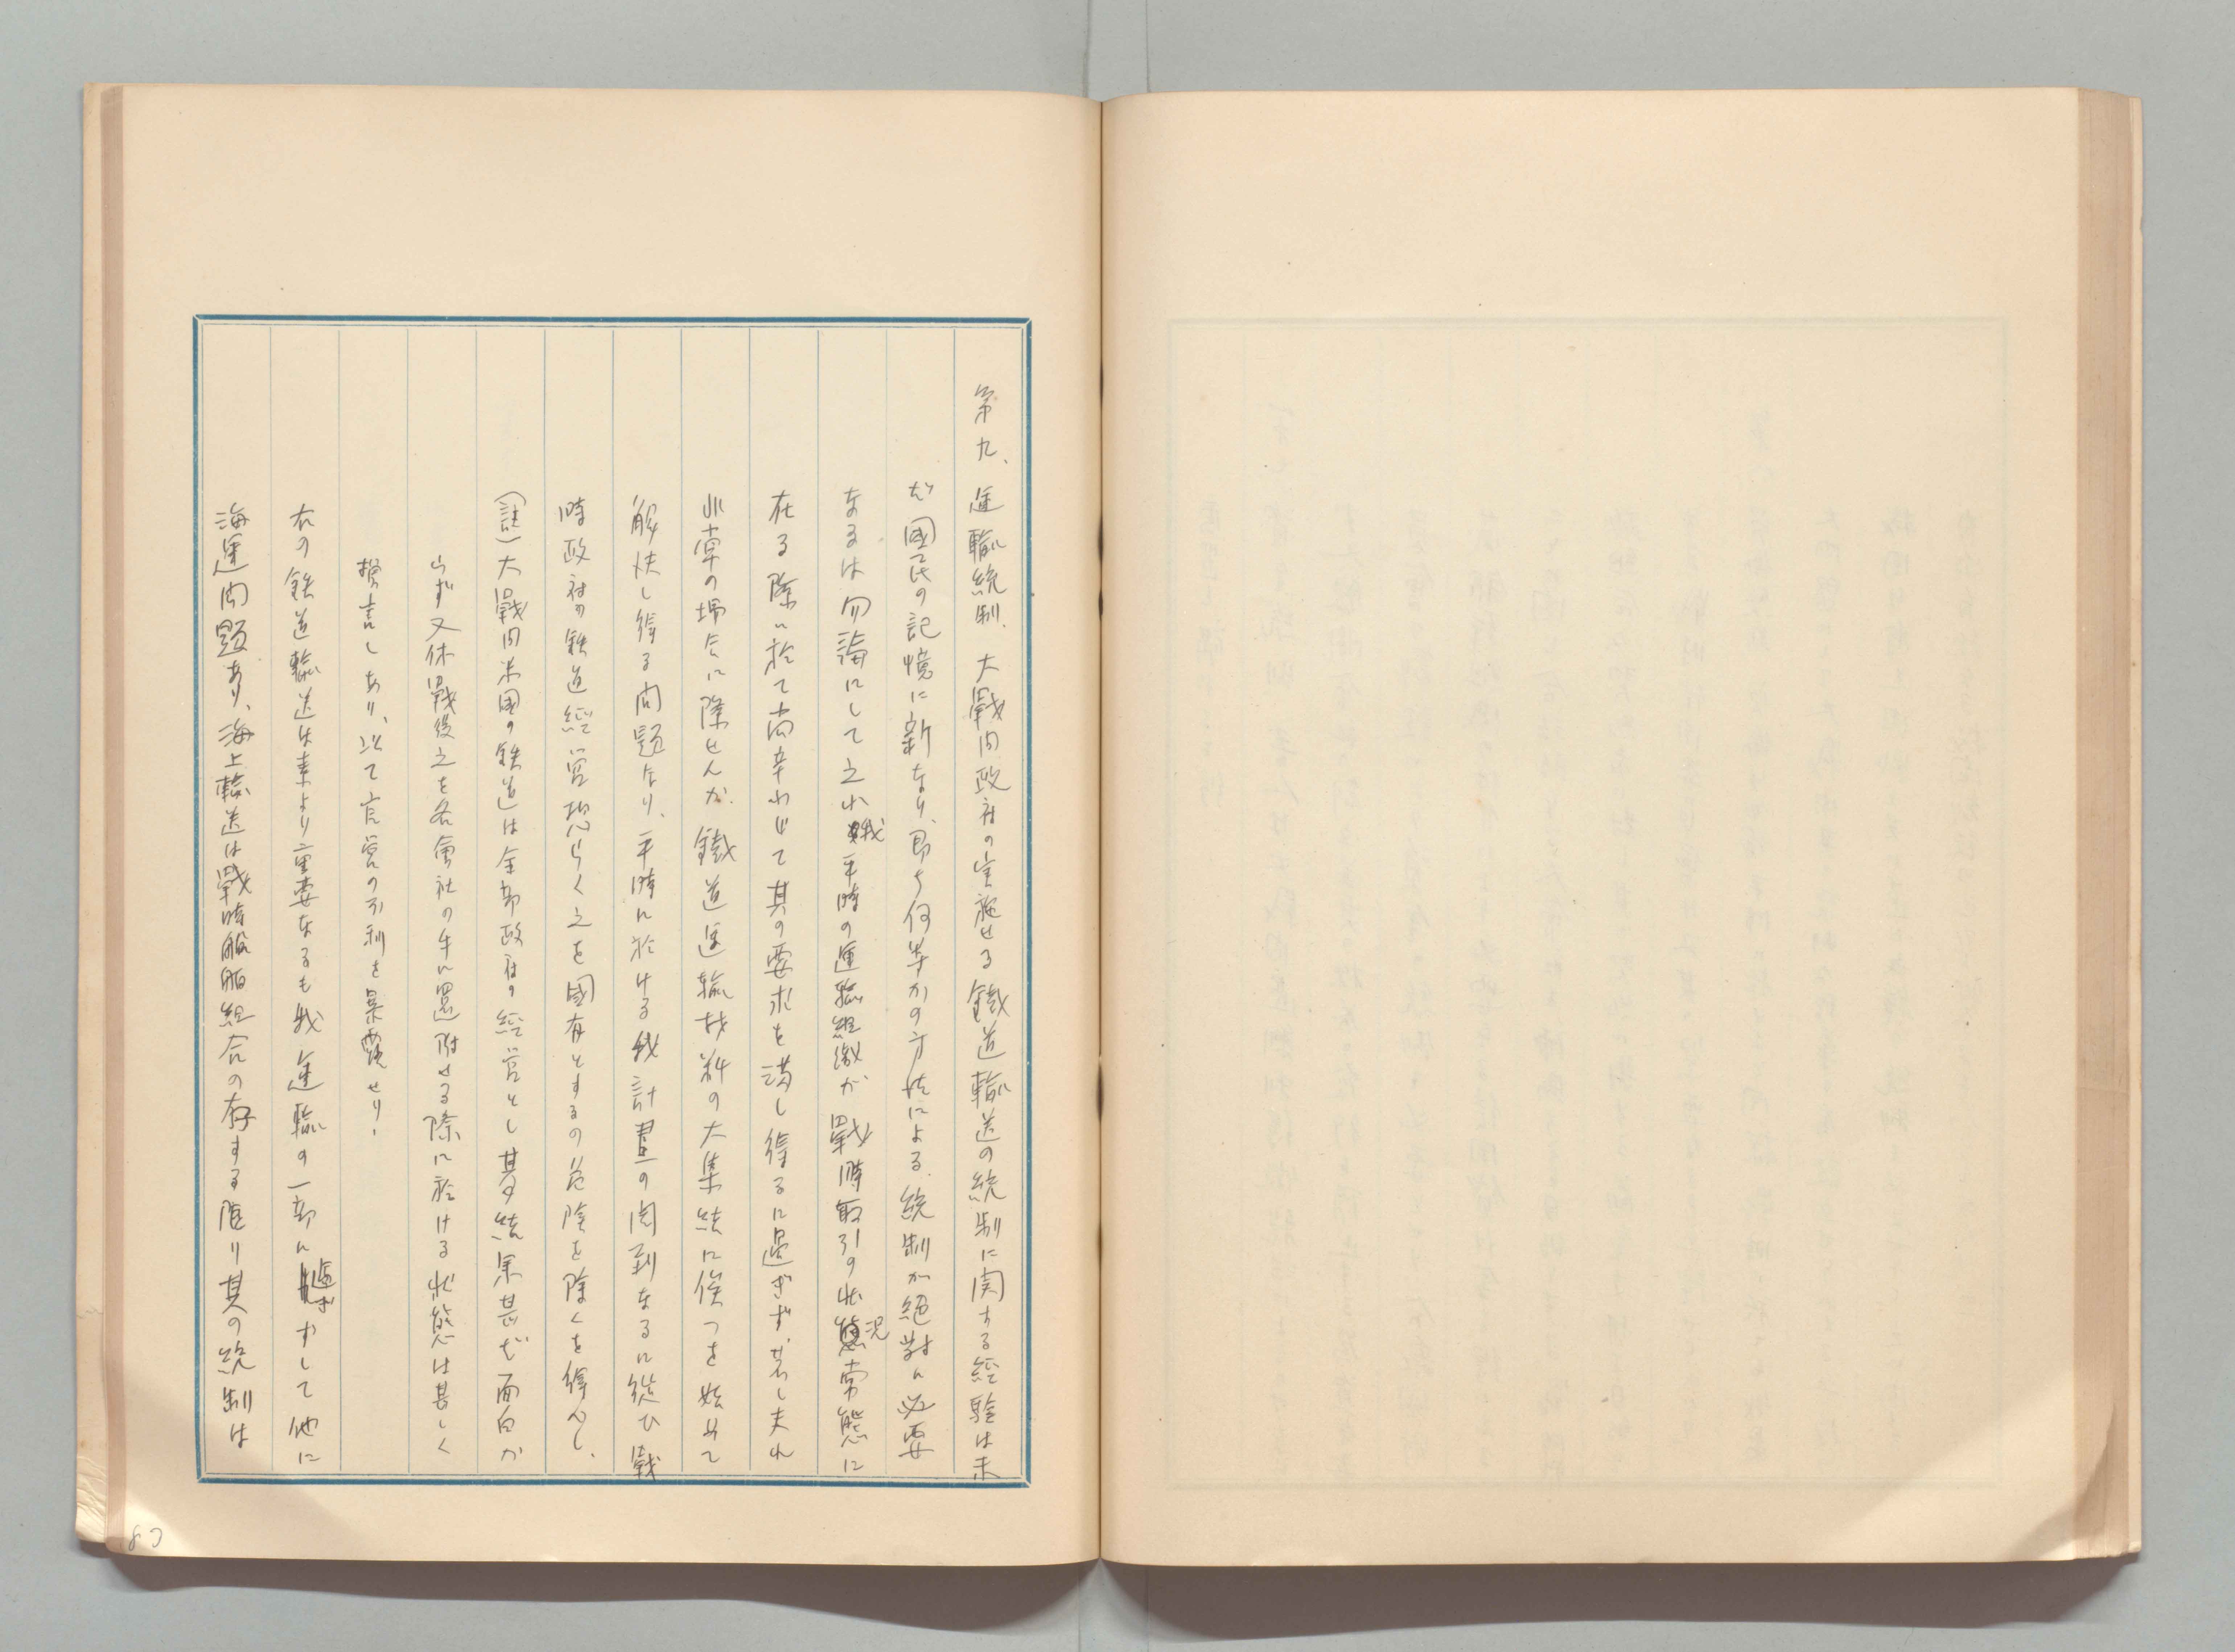 第九、運輸統制、大戰间政府の実施せる鐵道輸送の統制に関する経験は未
だ國民の記憶に新なり、即ち何等かの方法による統制が絶對に必要
なるは勿論にして之れ我平時の運輸組織が戰時取引の状況常態に
在る際に於て尚辛わじて其の要求を満し得るに過ぎず、若し夫れ
非常の場合に際せんか鐵道運輸材料の大集結に俟つを始めて
解决し得る问題なり、平時に於ける我計畫の周到なるに従ひ戰
時政府の鉄道經営恐らく之を國有とするの危険を除くを得べし、
(註)大戰间米國の鉄道は全部政府の経営とし其結果甚だ面白か
らず又休戰後之を各會社の手に還附せる際に於ける状態は甚しく
贅言しあり、以て官営の不利を暴露せり、
右の鉄道輸送は素より重要なるも我運輸の一部に過ぎずして他に
海運问題あり、海上輸送は戰時船舶組合の存する限り其の統制は
83